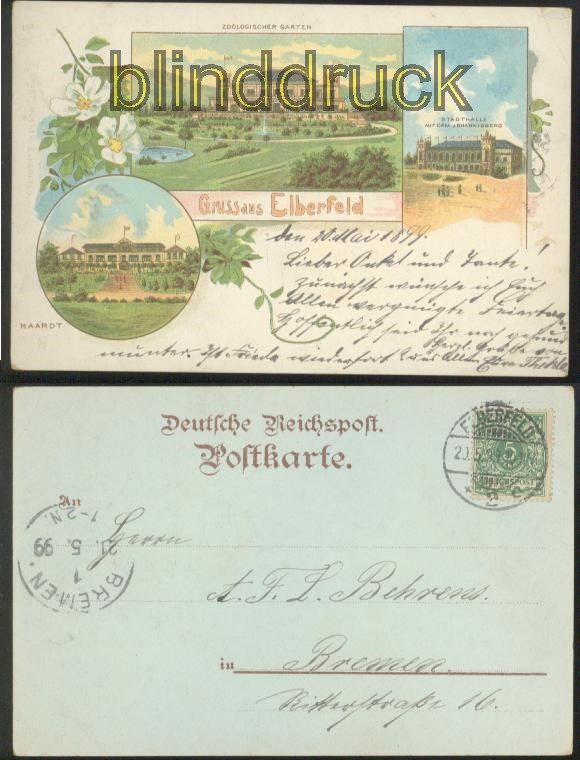 ZOOLOGISCHER GARTEN
blinddruck
STADTHALLE
AUF DEM JOHANNISBERG
Gruss aus Elberfeld
HAARDT
den 20 Mai 1899.
Lieber Onkel und Tante!
Zunächst wünsche ich Euch
Allen vergnügte Feiertage.
Hoffentlich seid Ihr noch gesund
munter. Ist Frieda wieder fort? Herzl. Grüße von
Allen Eure Thekla
Deutsche Reichspost.
Postkarte.
ELBERFELD
20.5.
REICHSPOST
5
An
Herrn
A. F. L. Behrens.
in Bremen.
Ritterstraße 16.
BREMEN.
1
5. 99
1-2 N.